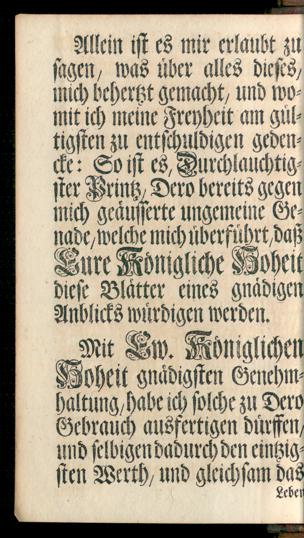 Allein ist es mir erlaubt zu
sagen, was über alles dieses,
mich behertzt gemacht, und wo-
mit ich meine Freyheit am gül-
tigsten zu entschuldigen geden-
cke: So ist es, Durchlauchtig-
ster Printz, Dero bereits gegen
mich geäusserte ungemeine Ge-
nade, welche mich überführt, daß
Eure Königliche Hoheit
diese Blätter eines gnädigen
Anblicks würdigen werden.
Mit Ew. Königlichen
Hoheit gnädigsten Genehm-
haltung, habe ich solche zu Dero
Gebrauch ausfertigen dürffen,
und selbigen dadurch den eintzig-
sten Werth, und gleichsam das
Leben